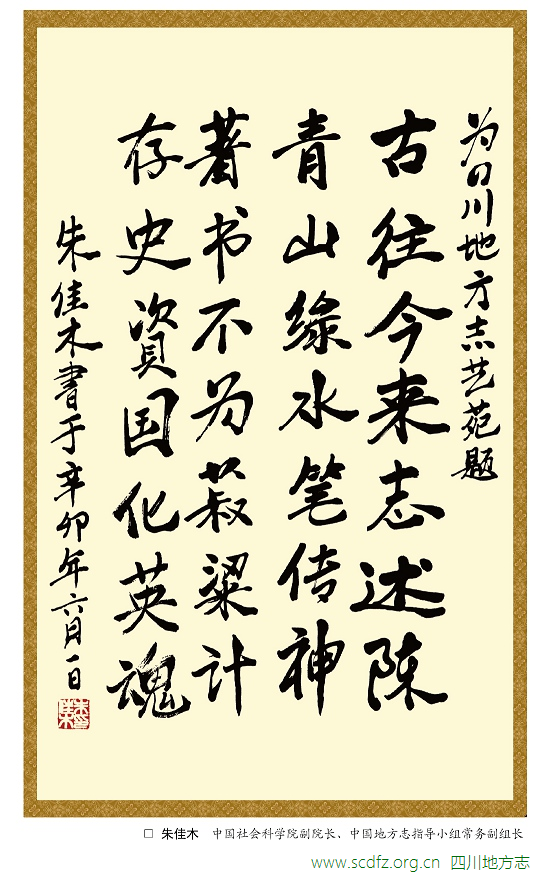 为四川地方志艺苑题
古往今来志述陈
青山绿水笔传神
著书不为菽粱计
存史資国化英魂
朱佳木書于辛卯年六月一日
□ 朱佳木 中国社会科学院副院长、中国地方志指导小组常务副组长
www.scdfz.org.cn 四川地方志